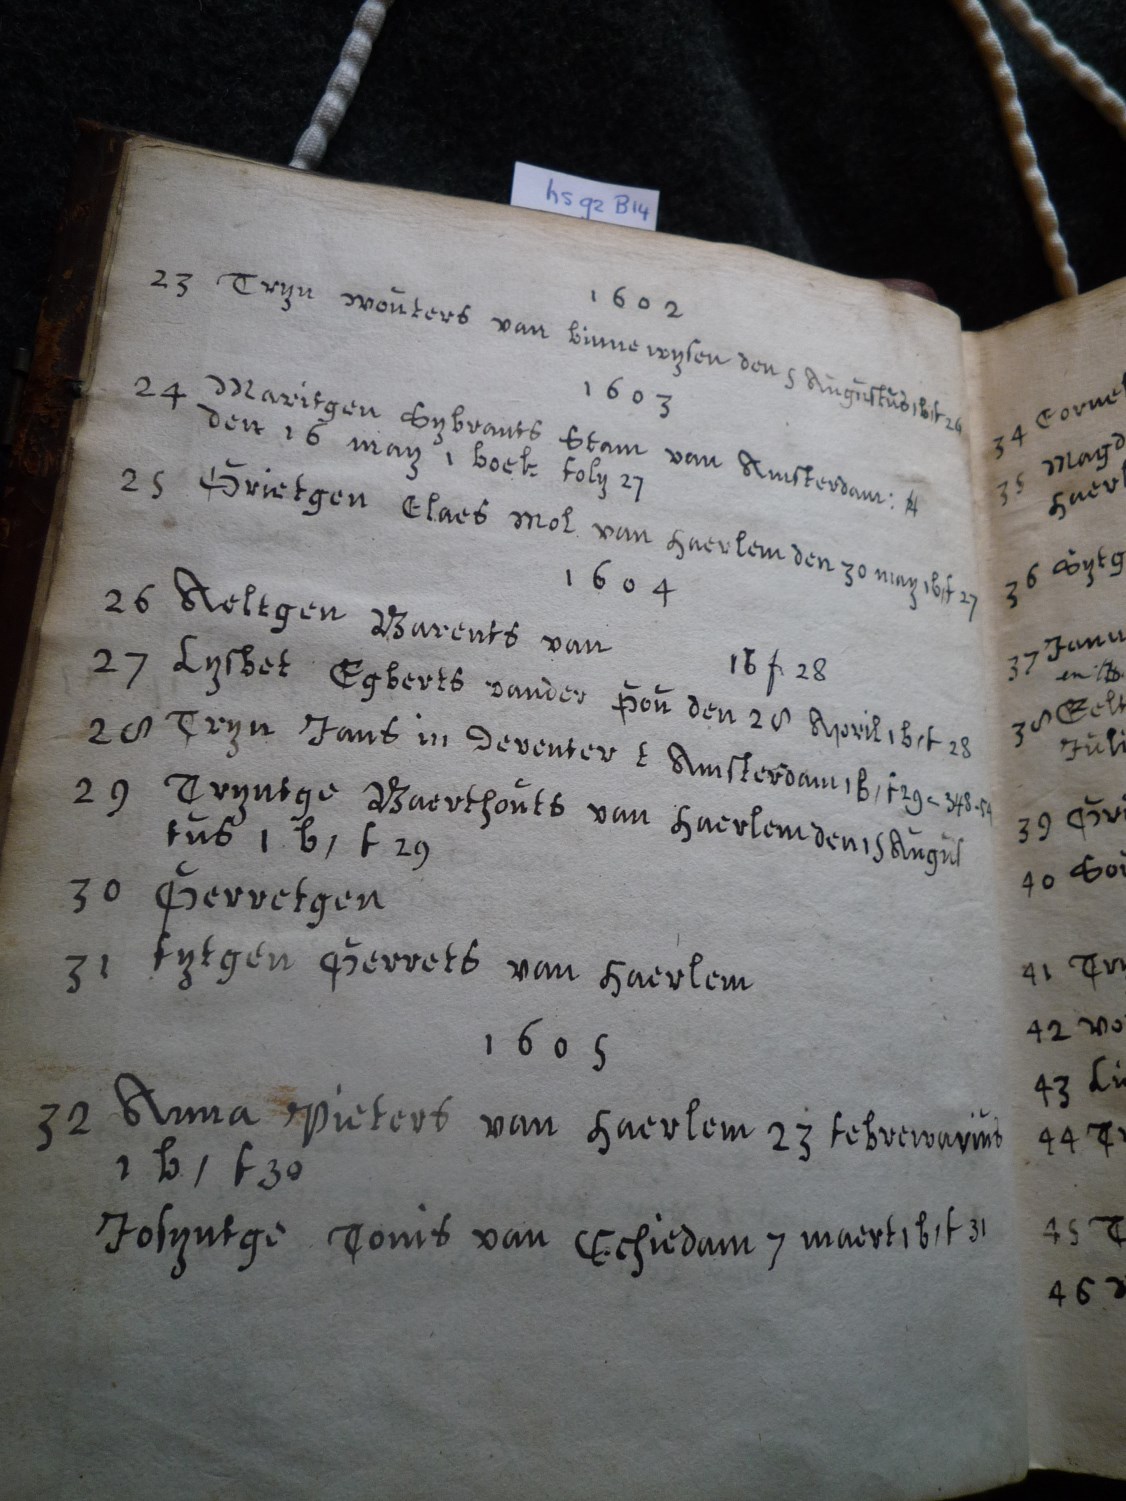 hs 92 B14
1602
23 Tryn wouters van binne wyſen den 5 Auguſtus 1 b, f 26
1603
24 Maritgen Sybrants Stam van Amſterdam:
den 16 may 1 boek foly 27
25 Grietgen Claes Mol van haerlem den 30 may 1 b, f 27
1604
26 Aeltgen Barents van 1 b f 28
27 Lyſbet Egberts vander Gou den 28 April 1 b, f 28
28 Tryn Jans in Deventer t Amſterdam 1 b, f 29 - 348-
29 Tryntge Baerthouts van haerlem den 15 Auguſ
tus 1 b, f 29
30 Gerretgen
31 fytgen Gerrets van haerlem
1605
32 Anna Pieters van haerlem 23 febrewarius
1 b, f 30
Joſyntge Tonis van Schiedam 7 maert 1 b, f 31
34 Cornel
35 Magd
haerl
36 Sytg
37 Jann
38 Gelt
Juli
39 Gri
40 Sou
41 Try
42 wo
43 Li
44 Tr
45 T
46